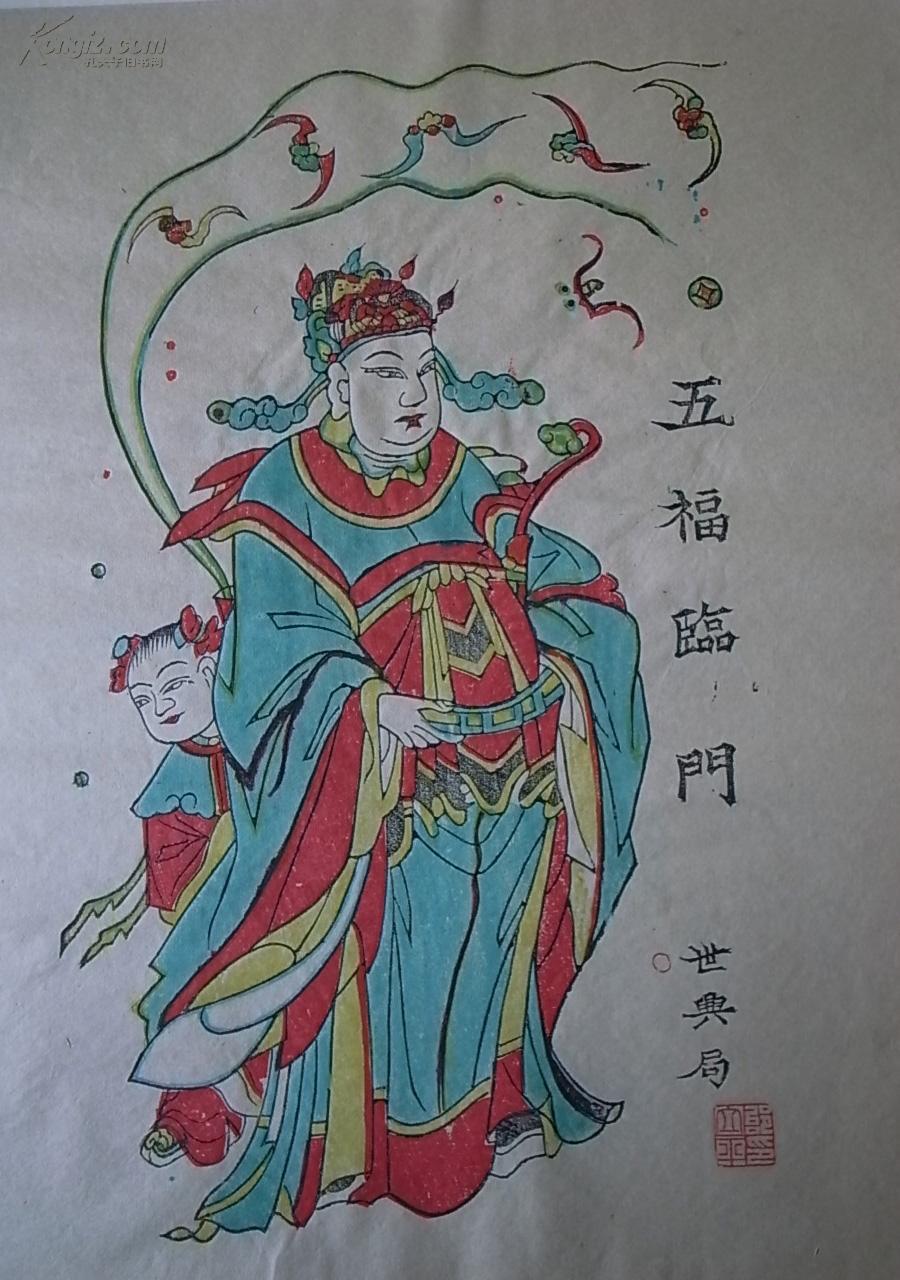 Kongfz.com
孔夫子旧书网
五福臨門
世興局